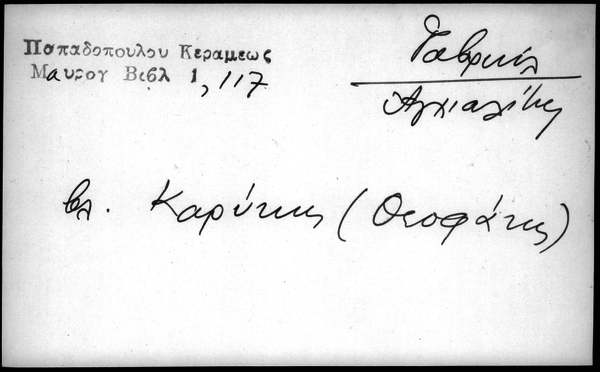 Παπαδοπουλου Κεραμεως
Μαυρογ Βιβλ 1, 117
Γαβριήλ
Ἀγχιαλίτης
βλ. Καρύκης (Θεοφάνης)